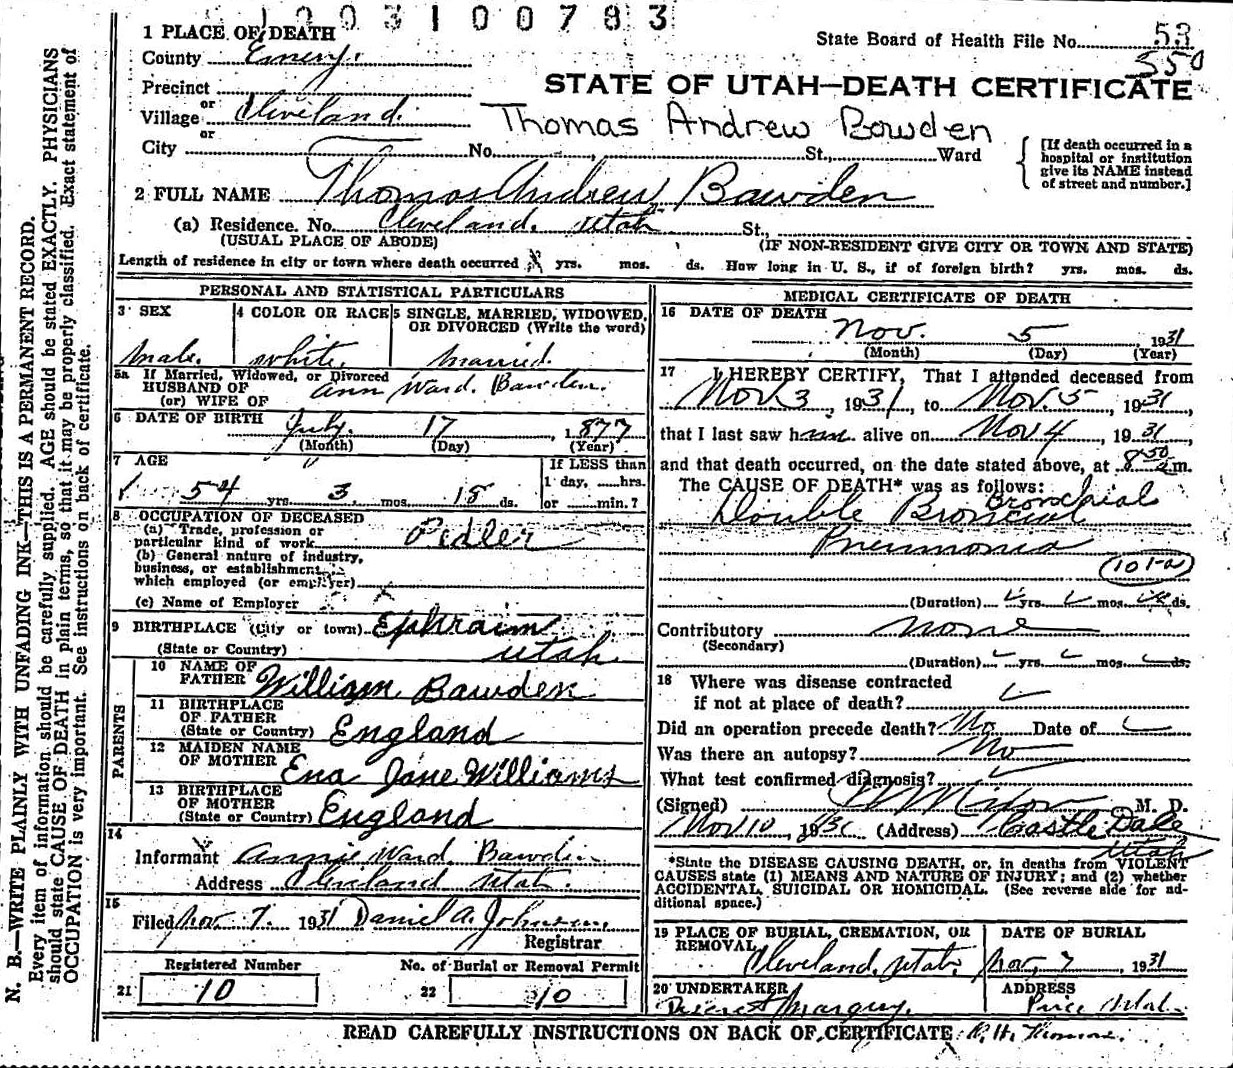 1003100783
1 PLACE OF DEATH
State Board of Health File No. 53
550
County Emery.
STATE OF UTAH—DEATH CERTIFICATE
Precinct
or
Village Cleveland.
Thomas Andrew Bowden
or
City No. St., Ward
[If death occurred in a hospital or institution give its NAME instead of street and number.]
2 FULL NAME Thomas Andrew Bawden
(a) Residence. No. Cleveland. Utah St.,
(USUAL PLACE OF ABODE) (IF NON-RESIDENT GIVE CITY OR TOWN AND STATE)
Length of residence in city or town where death occurred yrs. mos. ds. How long in U. S., if of foreign birth? yrs. mos. ds.
PERSONAL AND STATISTICAL PARTICULARS
3 SEX 4 COLOR OR RACE 5 SINGLE, MARRIED, WIDOWED,
OR DIVORCED (Write the word)
male. white. married.
5a If Married, Widowed, or Divorced
HUSBAND OF Ann Ward. Bawden.
(or) WIFE OF
6 DATE OF BIRTH July. 17, 1877
(Month) (Day) (Year)
7 AGE If LESS than
1 day, hrs.
54 yrs. 3 mos. 18 ds. or min.?
8 OCCUPATION OF DECEASED
(a) Trade, profession or
particular kind of work Pedler
(b) General nature of industry,
business, or establishment
which employed (or employer)
(c) Name of Employer
9 BIRTHPLACE (City or town) Ephraim
(State or Country) Utah
PARENTS
10 NAME OF
FATHER William Bawden
11 BIRTHPLACE
OF FATHER
(State or Country) England
12 MAIDEN NAME
OF MOTHER Ena Jane Williams
13 BIRTHPLACE
OF MOTHER
(State or Country) England
14
Informant Annie Ward. Bawden
Address Cleveland Utah.
15
Filed Nov. 7. 1931 Daniel A. Johnson,
Registrar
Registered Number No. of Burial or Removal Permit
21 10 22 10
MEDICAL CERTIFICATE OF DEATH
16 DATE OF DEATH
Nov. 5 1931
(Month) (Day) (Year)
17 I HEREBY CERTIFY, That I attended deceased from
Nov 3, 1931, to Nov. 5, 1931,
that I last saw him alive on Nov 4, 1931,
and that death occurred, on the date stated above, at 8 50 a m.
The CAUSE OF DEATH* was as follows:
Bronchial
Double Bronical
Pneumonia
101-a
(Duration) yrs. mos. ds.
Contributory none
(Secondary)
(Duration) yrs. mos. ds.
18 Where was disease contracted
if not at place of death?
Did an operation precede death? No Date of
Was there an autopsy? No
What test confirmed diagnosis?
(Signed) M. D.
Nov 10, 1931 (Address) Castle Dale
Utah
*State the DISEASE CAUSING DEATH, or, in deaths from VIOLENT
CAUSES state (1) MEANS AND NATURE OF INJURY; and (2) whether
ACCIDENTAL, SUICIDAL OR HOMICIDAL. (See reverse side for ad-
ditional space.)
19 PLACE OF BURIAL, CREMATION, OR DATE OF BURIAL
REMOVAL
Cleveland, Utah. Nov, 7 1931
20 UNDERTAKER ADDRESS
Price Utah.
READ CAREFULLY INSTRUCTIONS ON BACK OF CERTIFICATE
N. B.—WRITE PLAINLY WITH UNFADING INK—THIS IS A PERMANENT RECORD.
Every item of information should be carefully supplied. AGE should be stated EXACTLY. PHYSICIANS
should state CAUSE OF DEATH in plain terms, so that it may be properly classified. Exact statement of
OCCUPATION is very important. See instructions on back of certificate.